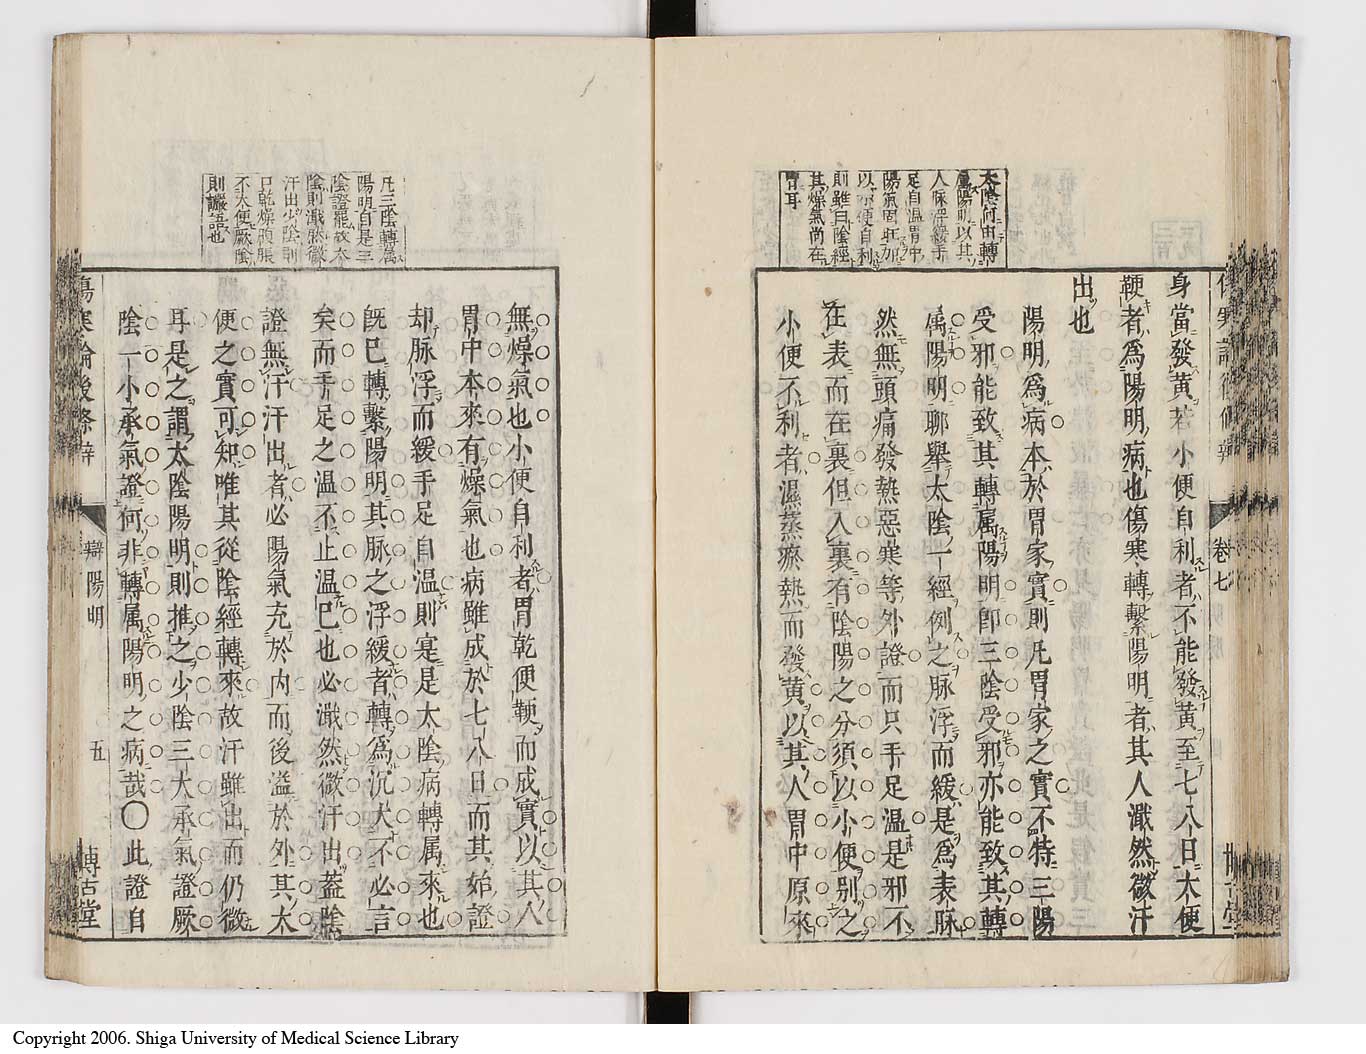 太陰何由轉
属陽明以其
人脉浮緩手
足自温胃中
陽氣固旺加
以小便自利
則雖曰陰經
其燥氣尚在
胃耳
卷七
身當發黃若小便自利者不能發黃至七八日大便
鞕者爲陽明病也傷寒轉繫陽明者其人濈然微汗
出也
陽明爲病本於胃家實則凡胃家之實不特三陽
受邪能致其轉属陽明即三陰受邪亦能致其轉
属陽明聊舉太陰一經例之脉浮而緩是爲表脉
然無頭痛發熱惡寒等外證而只手足温是邪不
在表而在裏但入裏有陰陽之分須以小便别之
小便不利者濕蒸瘀熱而發黃以其人胃中原來
凡三陰轉属
陽明自是三
陰證罷故太
陰則濈然微
汗出少陰則
口乾燥腹脹
不大便厥陰
則讝語也
無燥氣也小便自利者胃乾便鞕而成實以其人
胃中本來有燥氣也病雖成於七八日而其始證
却脉浮而緩手足自温則寔是太陰病轉属來也
既已轉繫陽明其脉之浮緩者轉爲沉大不必言
矣而手足之温不止温已也必濈然微汗出蓋陰
證無汗汗出者必陽氣充於内而後溢於外其大
便之實可知唯其從陰經轉來故汗雖出而仍微
耳是之謂太陰陽明則推之少陰三大承氣證厥
陰一小承氣證何非轉属陽明之病哉○此證自
傷寒論後條辯
辯陽明
五
博古堂
Copyright 2006. Shiga University of Medical Science Library